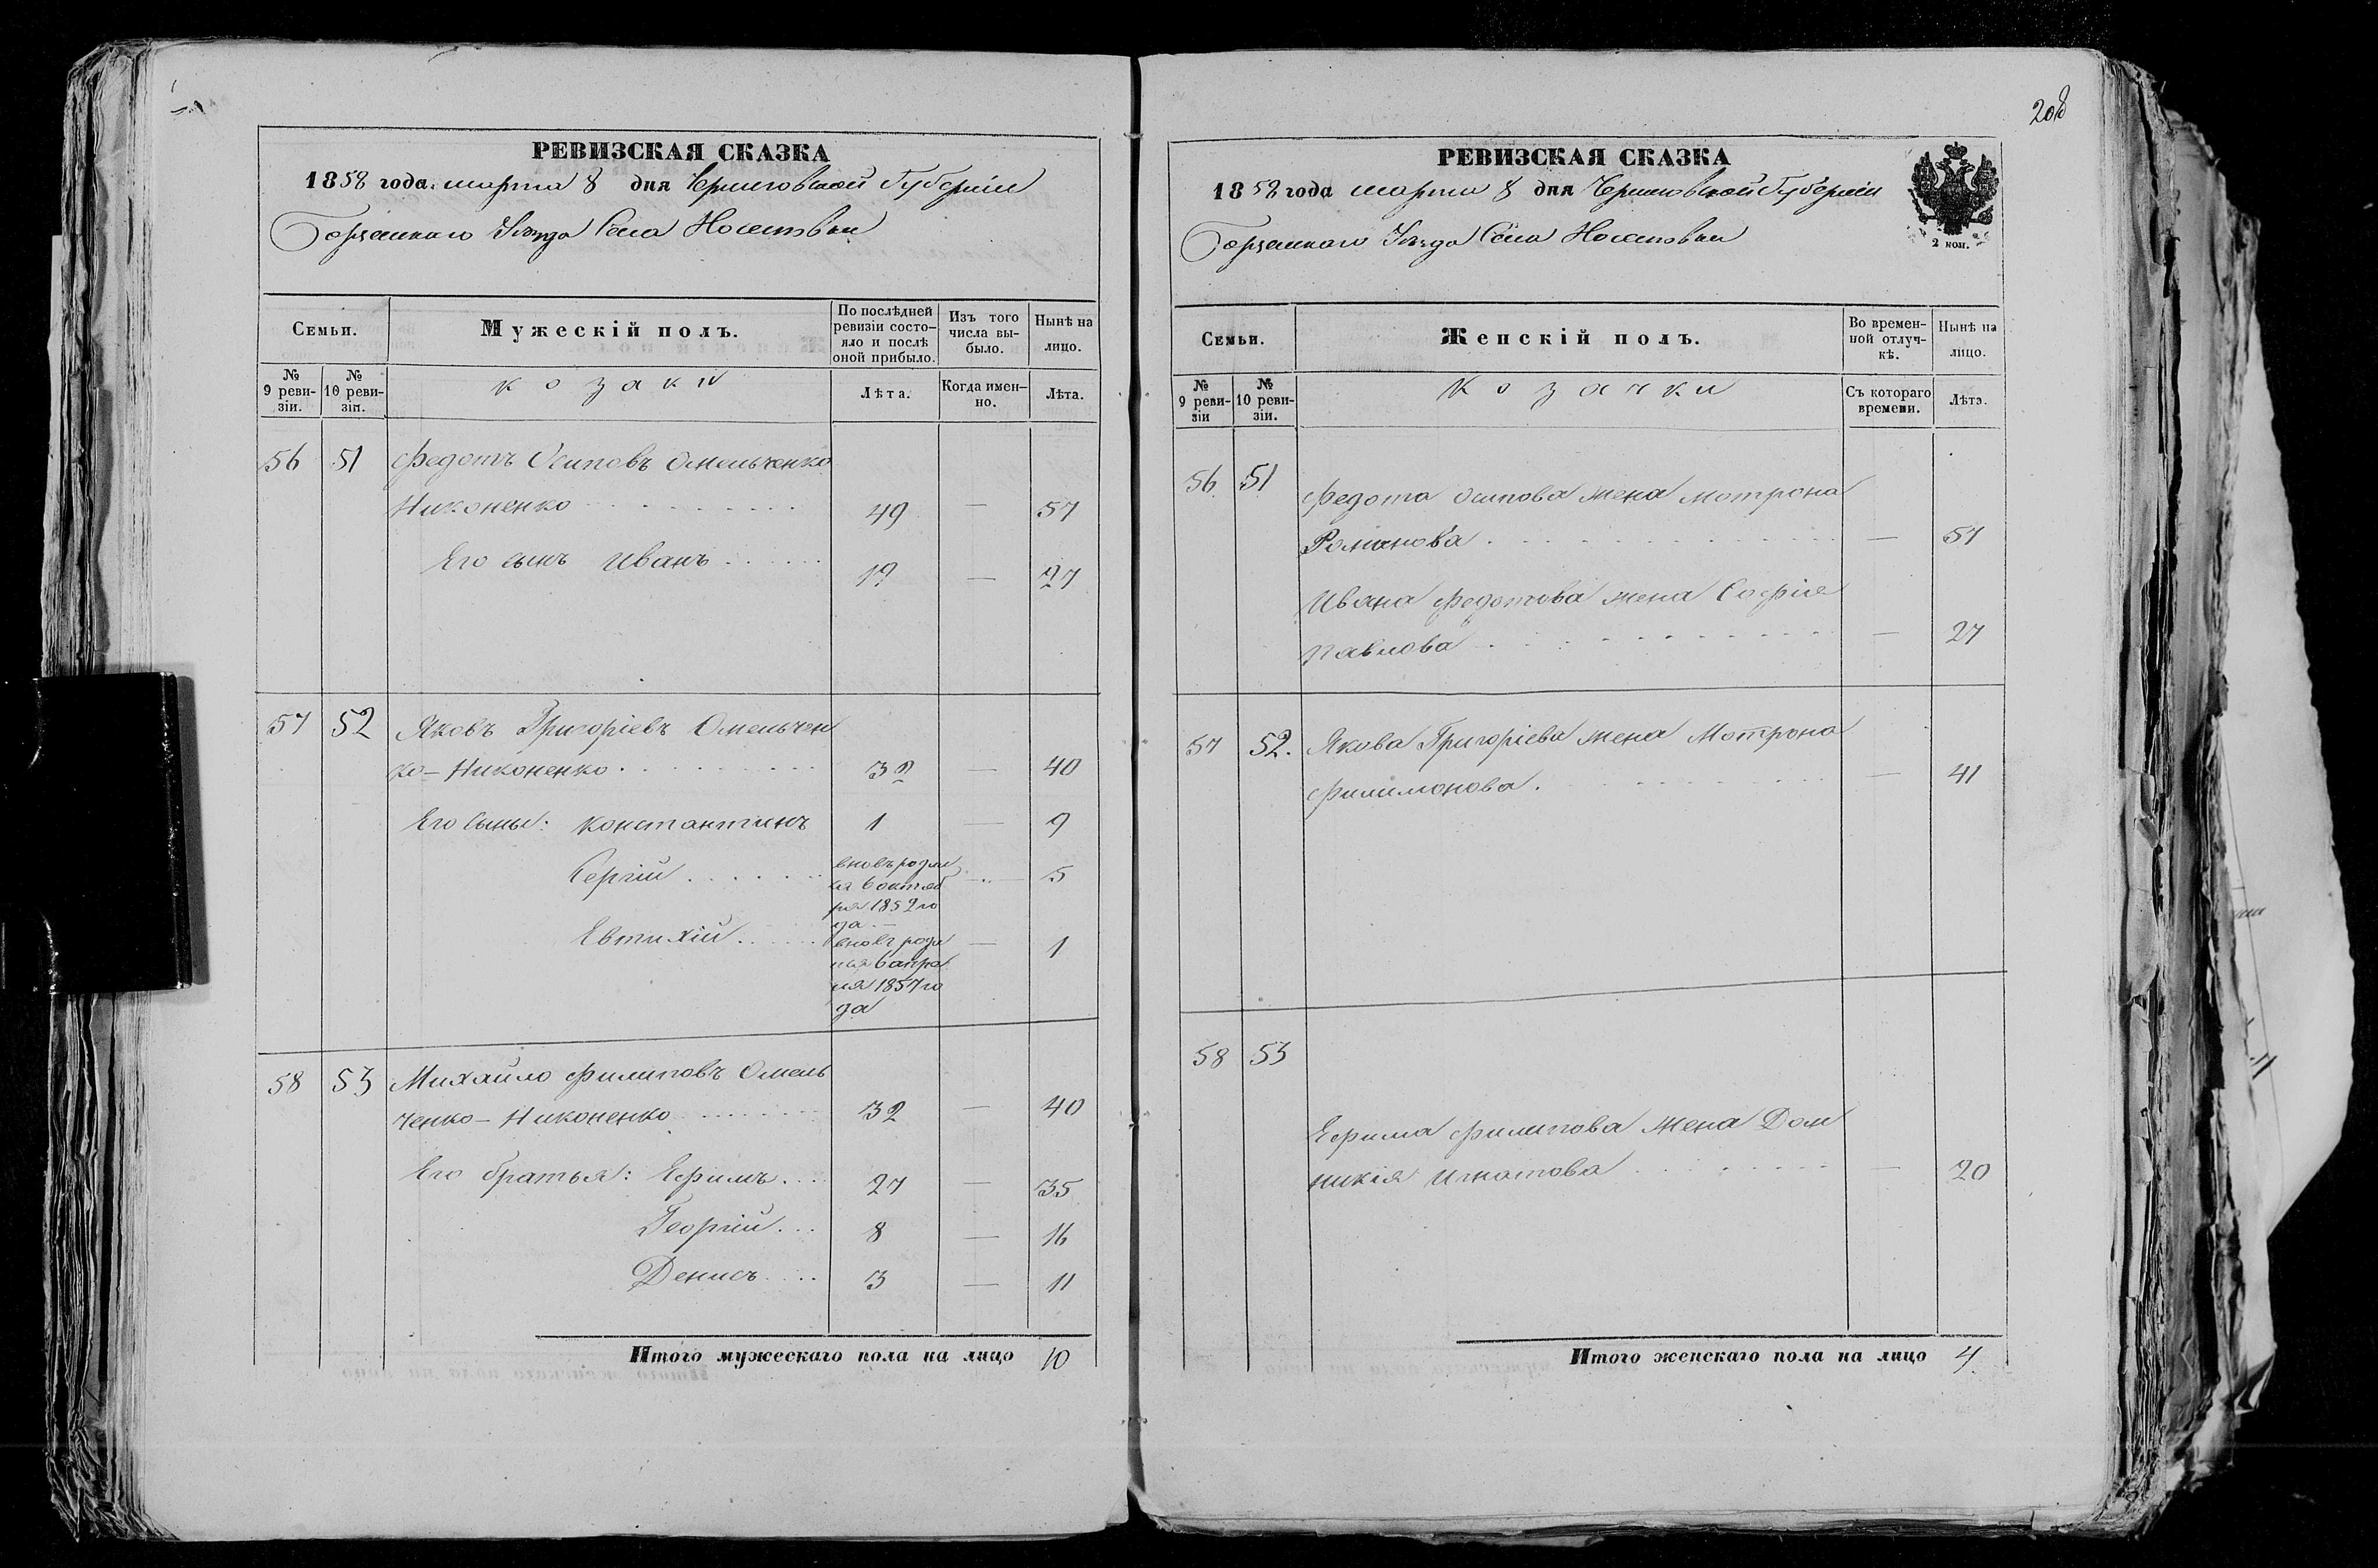 208
РЕВИЗСКАЯ СКАЗКА
1858 года марта 8 дня Черниговской Губерніи
Борзенскаго Уѣзда Села Носелевки
Семьи.
Мужескій полъ.
По послѣдней ревизіи состо-
яло и послѣ оной прибыло.
Изъ того числа вы-
было.
Нынѣ на лицо.
№ 9 реви-
зіи.
№ 10 реви-
зіи.
козаки
Лѣта.
Когда имен-
но.
Лѣта.
56 51 Федотъ Осиповъ Омельченко
Никоненко 49 — 57
Его сынъ Иванъ 19 — 27
57 52 Яковъ Григоріевъ Омельчен
ко-Никоненко 32 — 40
Его сыны: Константинъ 1 — 9
Сергій — 5
вновь родил
ся 6 октяб
ря 1852 го
да
Евтихій — 1
вновь родил
ся 6 апре
ля 1857 го
да
58 53 Михайло Филиповъ Омель
ченко-Никоненко 32 — 40
Его братья: Ефимъ 27 — 35
Георгій 8 — 16
Денисъ 3 — 11
Итого мужескаго пола на лицо 10
РЕВИЗСКАЯ СКАЗКА
1858 года марта 8 дня Черниговской Губерніи
Борзенскаго Уѣзда Села Носелевки
2 коп.
Семьи.
Женскій полъ.
Во времен-
ной отлуч-
кѣ.
Нынѣ на лицо.
№ 9 реви-
зіи
№ 10 реви-
зіи.
козачки
Съ котораго времени.
Лѣта.
56 51
Федота Осипова жена Мотрона
Романова — 51
Ивана Федотова жена Софія
Павлова — 27
57 52. Якова Григоріева жена Мотрона
Филимонова — 41
58 53
Ефима Филипова жена Дом
никія Игнатова — 20
Итого женскаго пола на лицо 4.